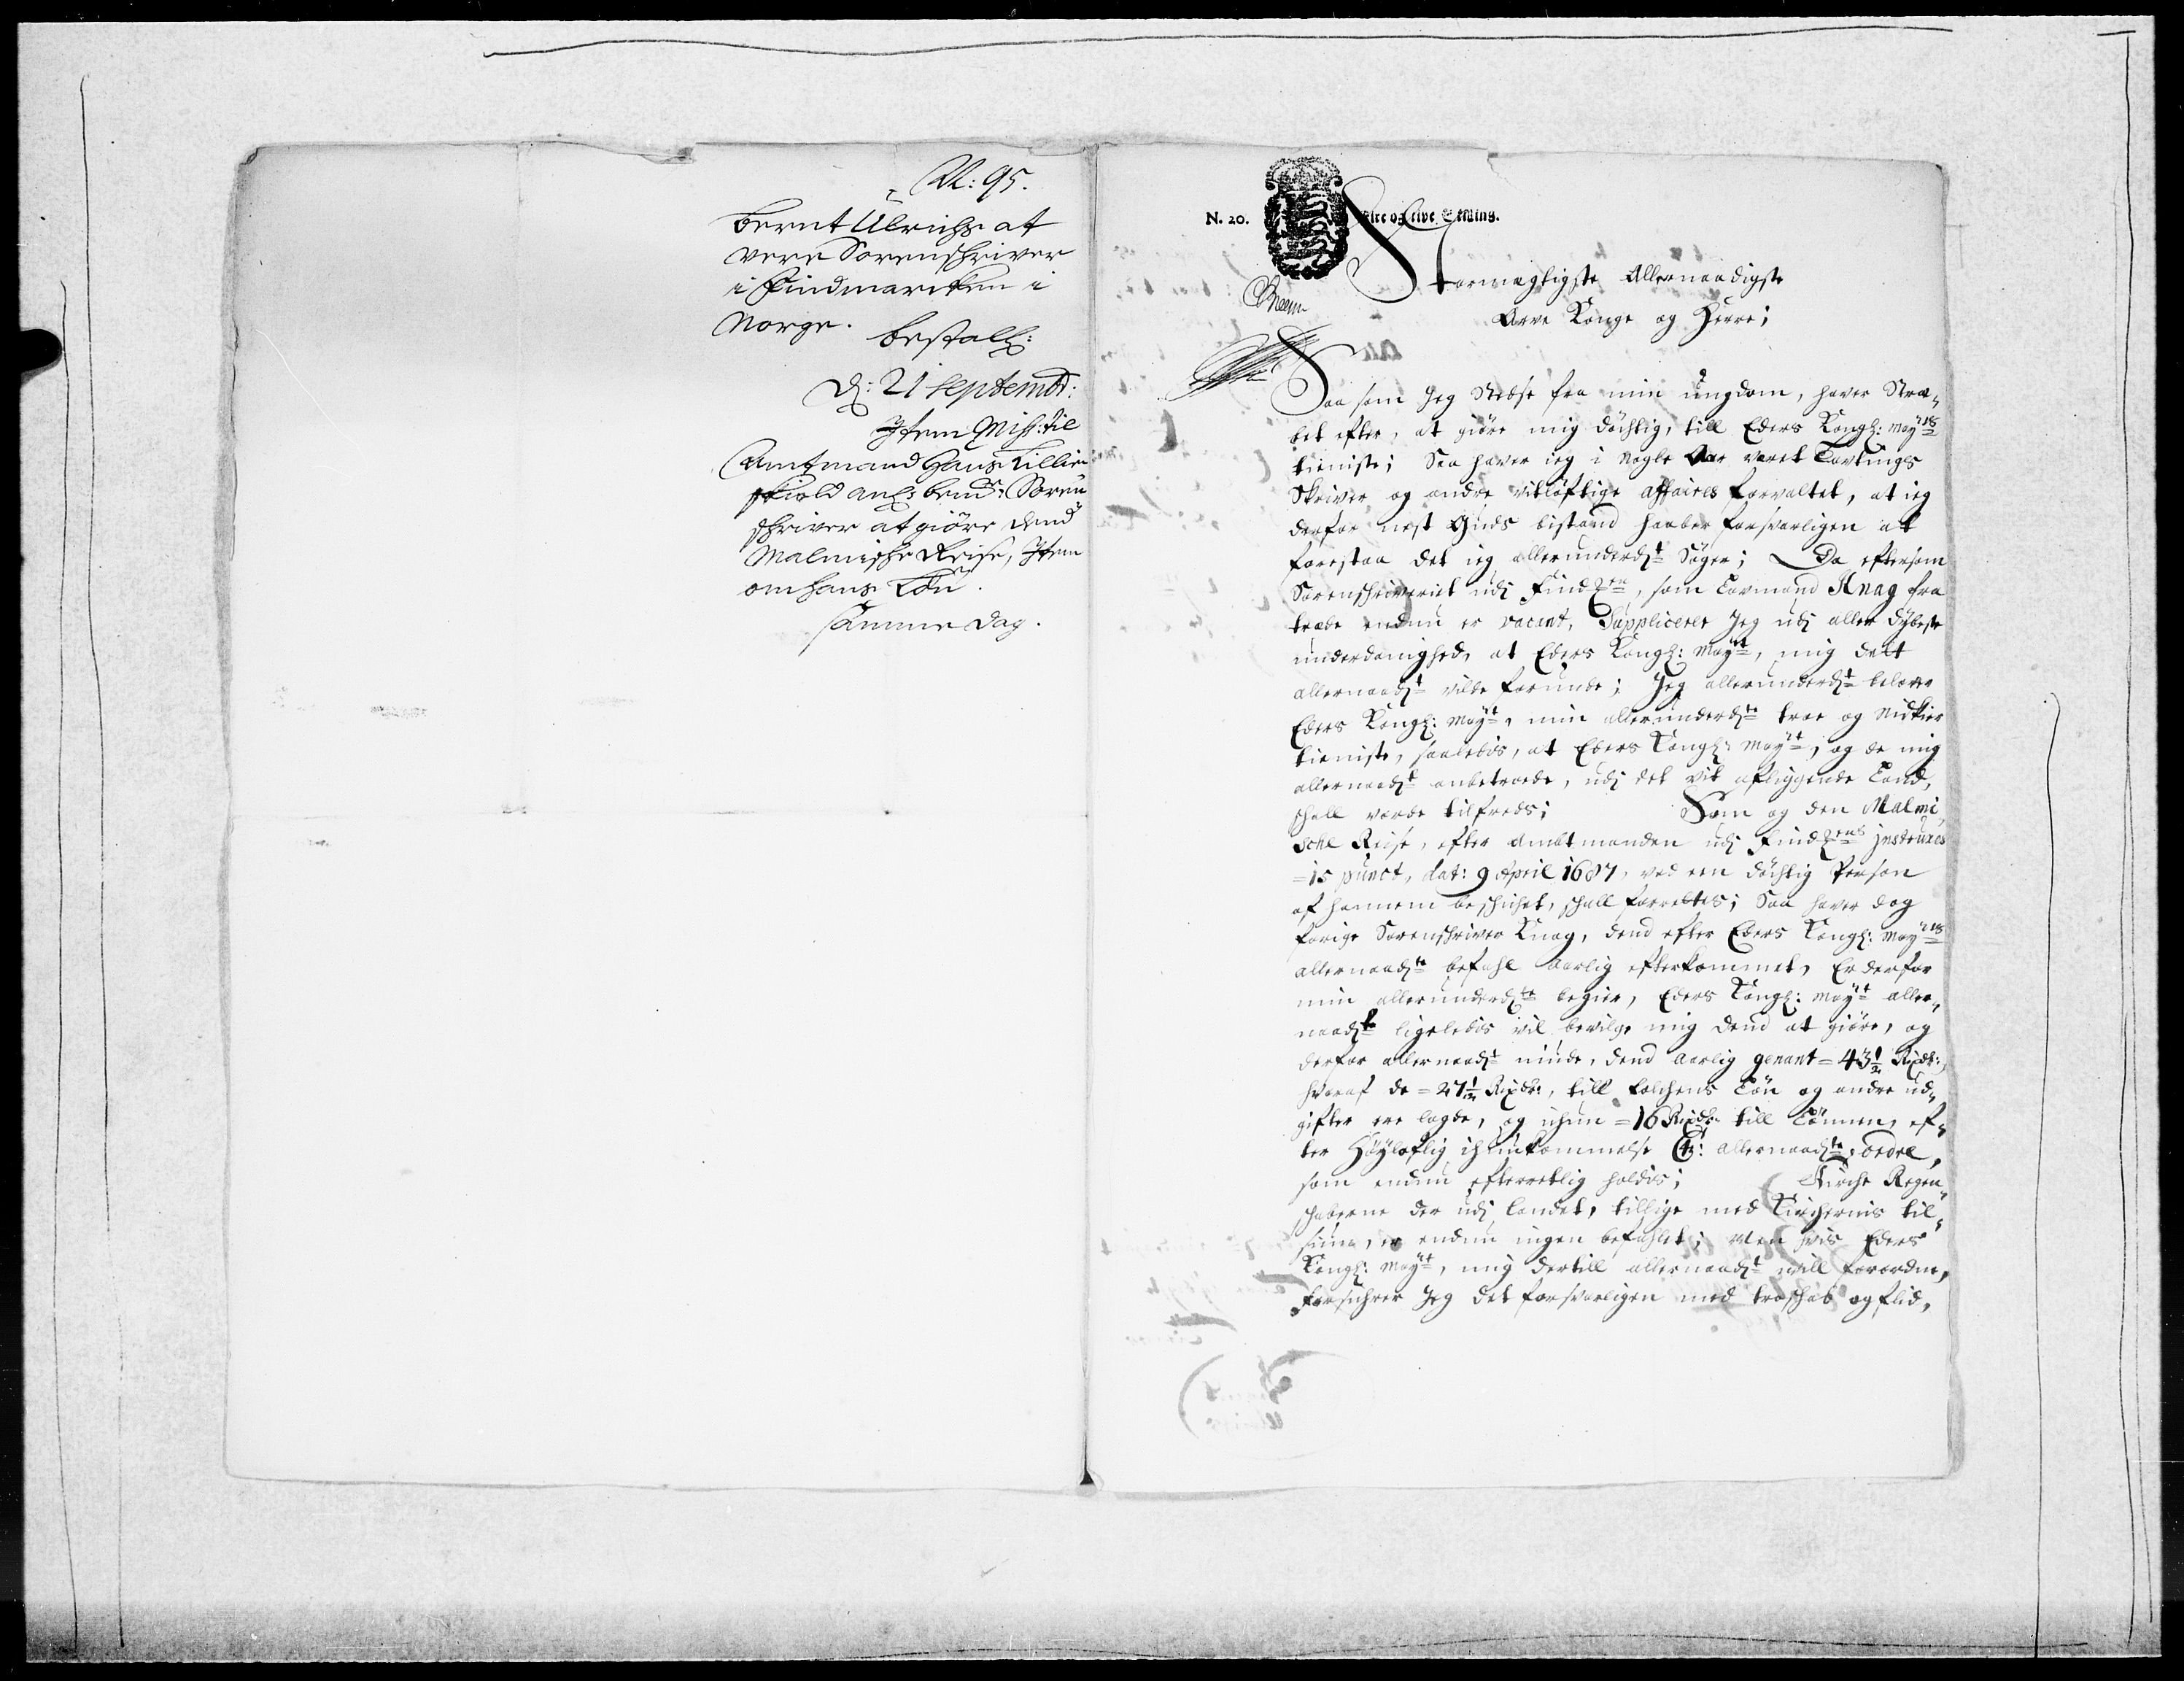 N: 95.
Bernt Ulrichs at
vere Sorenschriver
i Findmarcken i
Norge. bestall:
d: 21 septembr:
Item Miss: til
Amtmand Hans Lillien
schiold anl: bem: Soren
schriver at giöre dend
Malmische Reise, Item
om hans Lön.
samme dag.
N. 20. Fire og Tive Skilling.
Stormægtigste Allernaadigste
Arve Konge og Herre;
Saa som Jeg stedse fra min ungdom, haver Stræ-
bet efter, at giöre mig döchtig, till Eders Kongl: Mayts
tieniste; Saa haver ieg i nogle Aar veret Lavtings
Skriver og andre vitlöftige affaires forvaltet, at ieg
derfor nest Guds bistand haaber forsvarligen at
forestaa det ieg allerunderdt Söger; Da eftersom
Sorenschriveriet udj Findmen, som Lavmand Knag fra
traade endnu er vacant, Suppliceret Jeg udj aller dybeste
underdanighed, at Eders Kongl: Mayt, mig dett
allernaadt vilde forunde; Jeg allerunderdt belover
Eders Kongl: Mayt, min allerunderdte troe og nidkier
tieniste, saaledis, at Eders Kongl: Mayt, og de mig
allernaadt anbetroede, udj det vit afliggende Land,
schall vorde tilfreds; Som og den Malmi
sche Reise, efter Ambtmanden udj Findmens Instruxes
=15 punct, dat: 9 April 1687, ved een döchtig Person
af hannem beschichet, schall forrettes; Saa haver dog
forige Sorenschriver Knag, dend efter Eders Kongl: Mayts
allernaadte befahl aarlig efterkommet, Er derfor
min allerunderdte begier, Eders Kongl: Mayt aller-
naadte ligeledis vil bevilge mig dend at giöre, og
derfor allernaadt niude, dend aarlig genant = 43½ Rixdr:,
hvoraf de = 27½ Rixdr:, till folchens Lön og andre ud-
gifter ere lagde, og ichun = 16 Rixdr: till Lönnen, ef-
ter Höyloflig ihukommelse C4: allernaadte ordre,
som endnu efterretlig holdis; Kirche Regen-
schaberne der udj landet, tillige med Kirchernis til-
siun, er endnu ingen befahlet; Men hvis Eders
Kongl: Mayt, mig dertill allernaadt will forordne,
forsichrer Jeg det forsvarligen med troeschab og flid,